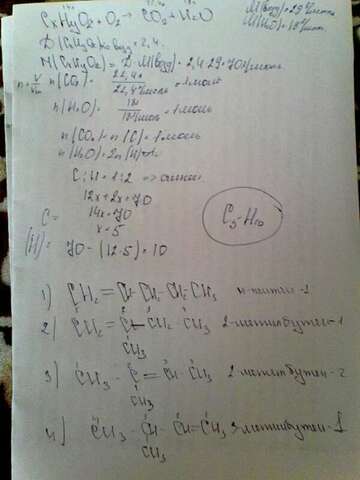 CxHyO2 + O2 → CO2 + H2O
M(возд) = 29 г/моль
M(H2O) = 18 г/моль
D(CxHyOz) по возд = 2,4.
M(CxHyOz) = D·M(возд) = 2,4·29 = 70 г/моль
n = V/Vm n(CO2) = 22,4л / 22,4 л/моль = 1 моль
n(H2O) = 18г / 18г/моль = 1 моль
n(CO2) = n(C) = 1 моль
n(H2O) = 2n(H)
C : H = 1 : 2 => алкен
12x + 2x = 70
14x = 70
C = x = 5
(H) = 70 - (12·5) = 10
C5H10
1) CH2 = CH CH2 CH2 CH3 н-пентен-1
2) CH2 = C - CH2 - CH3 2-метилбутен-1
CH3
3) CH3 - C = CH - CH3 2-метилбутен-2
CH3
4) CH3 - CH - CH = CH2 3-метилбутен-1
CH3